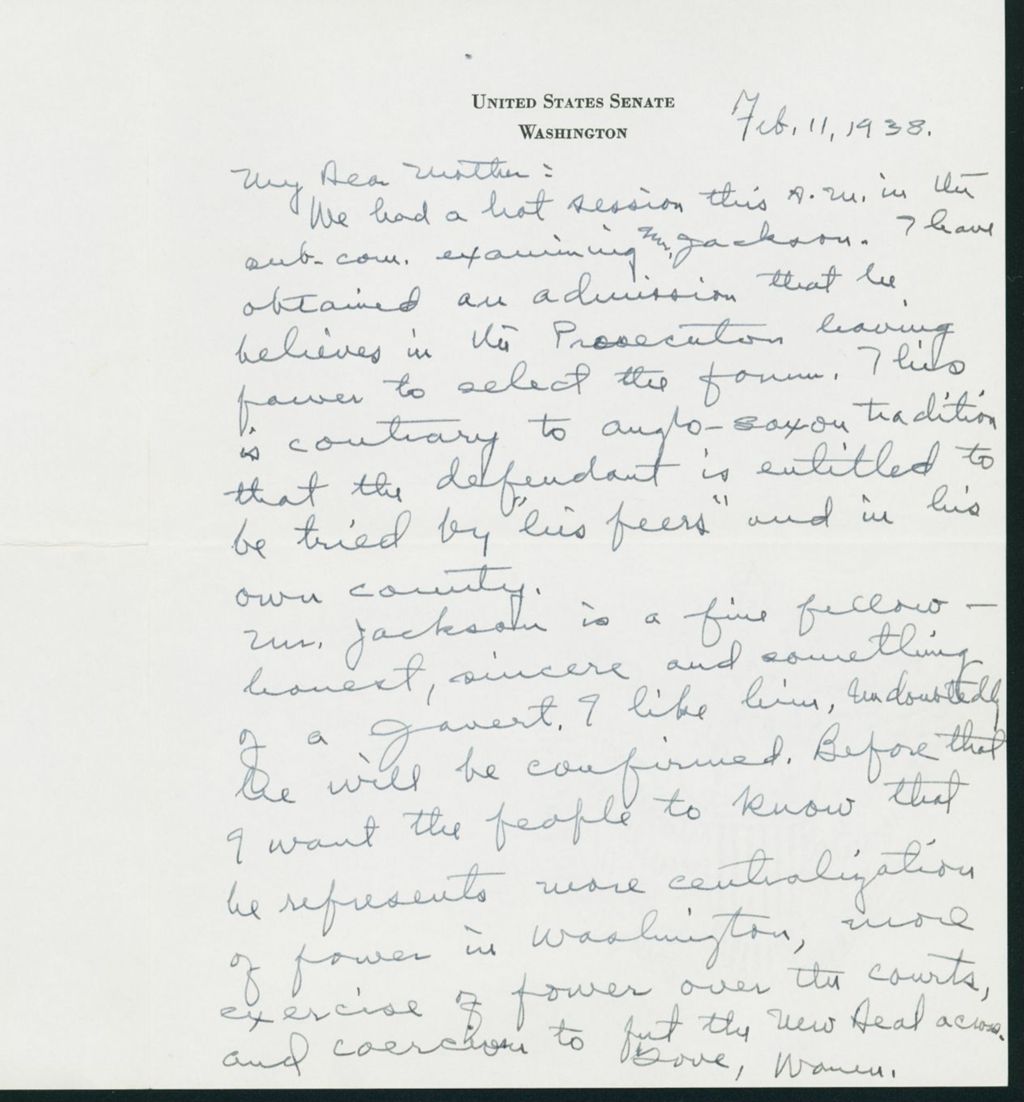 UNITED STATES SENATE
WASHINGTON
Feb. 11, 1938.
My Dear Mother:
We had a hot session this A.M. in the
sub-com. examining Mr. Jackson. I have
obtained an admission that he
believes in the Prosecution having
power to select the forum. This
is contrary to anglo-saxon tradition
that the defendant is entitled to
be tried by "his peers" and in his
own county.
Mr. Jackson is a fine fellow –
honest, sincere and something
of a zealot. I like him, Undoubtedly
he will be confirmed. Before that
I want the people to know that
he represents more centralization
of power in Washington, more
exercise of power over the courts,
and coercion to put the New Deal across.
Love, Warren.